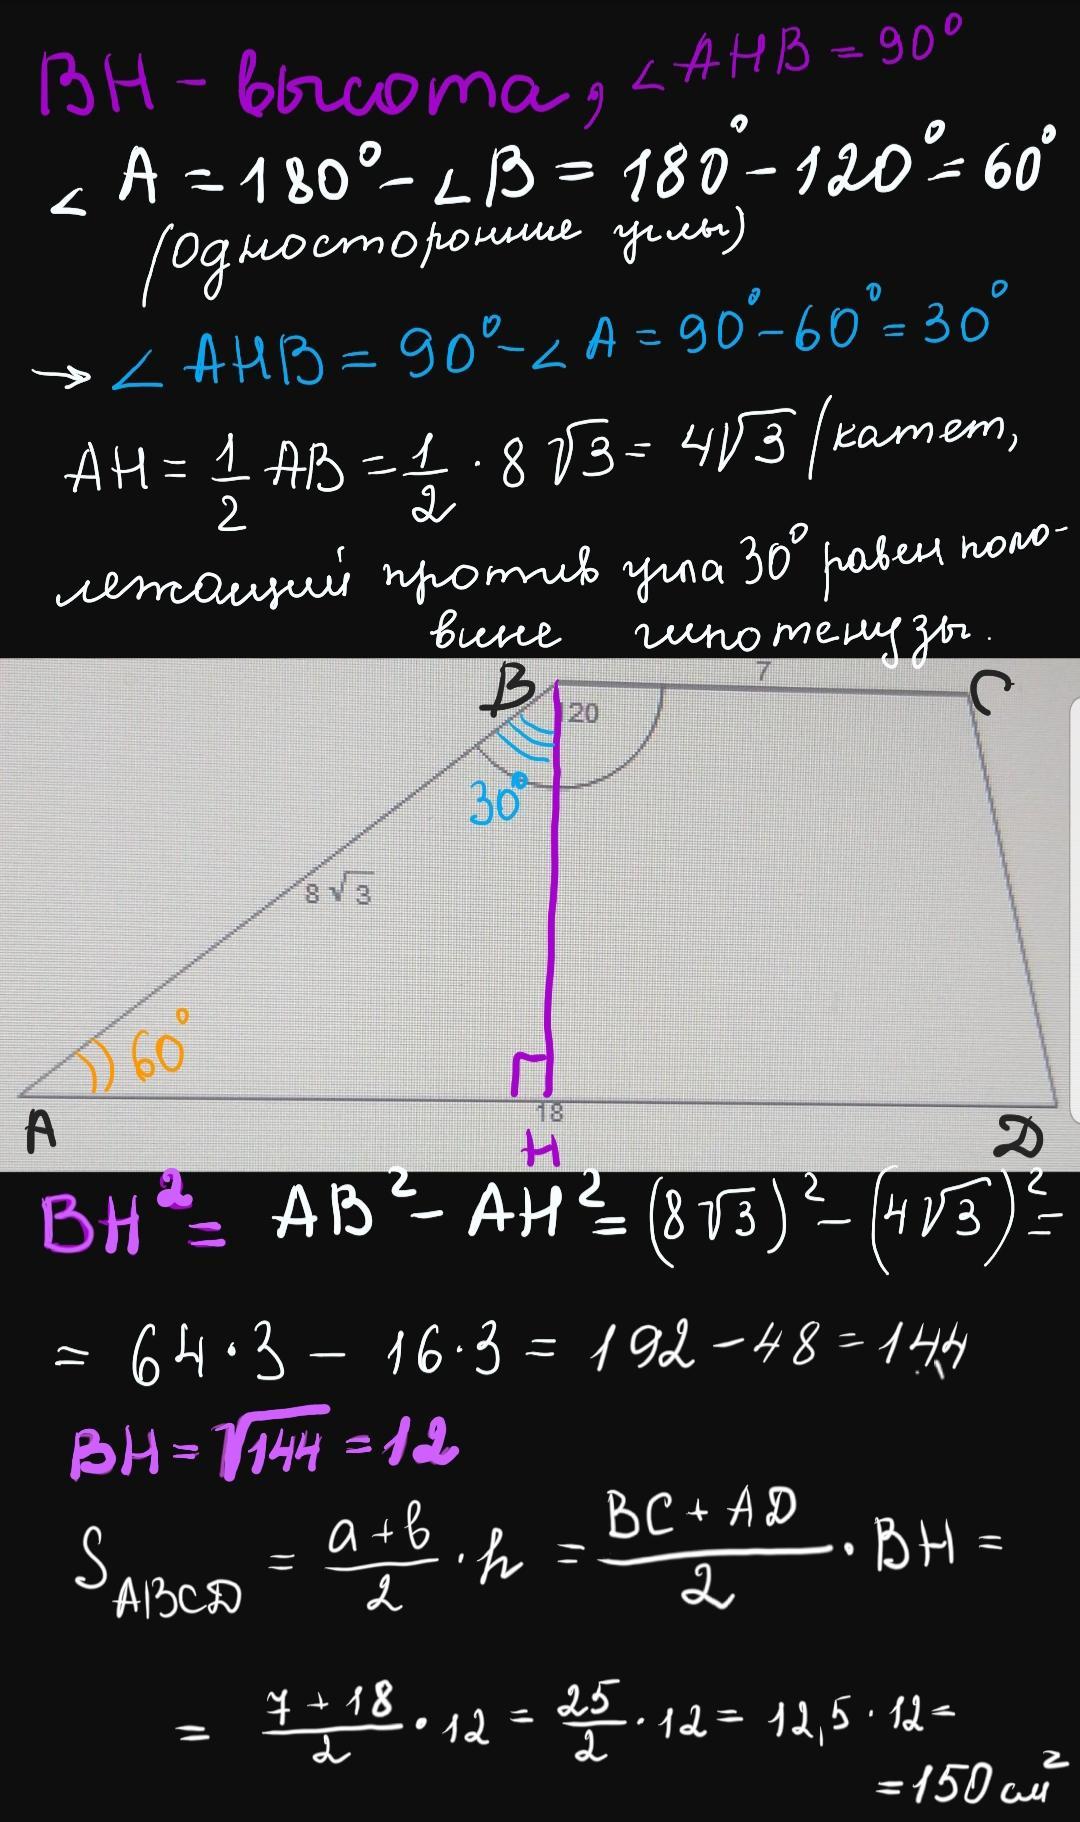 BH - высота, ∠AHB = 90°
∠A = 180° - ∠B = 180° - 120° = 60°
(односторонние углы)
→ ∠AHB = 90° - ∠A = 90° - 60° = 30°
AH = 1/2 AB = 1/2 · 8√3 = 4√3 (катет,
лежащий против угла 30° равен поло-
вине гипотенузы.
B 7 C
120
30°
8√3
60°
A 18 D
H
BH² = AB² - AH² = (8√3)² - (4√3)² =
= 64·3 - 16·3 = 192 - 48 = 144
BH = √144 = 12
S ABCD = (a+b)/2 · h = (BC + AD)/2 · BH =
= (7 + 18)/2 · 12 = 25/2 · 12 = 12,5 · 12 =
= 150 см²